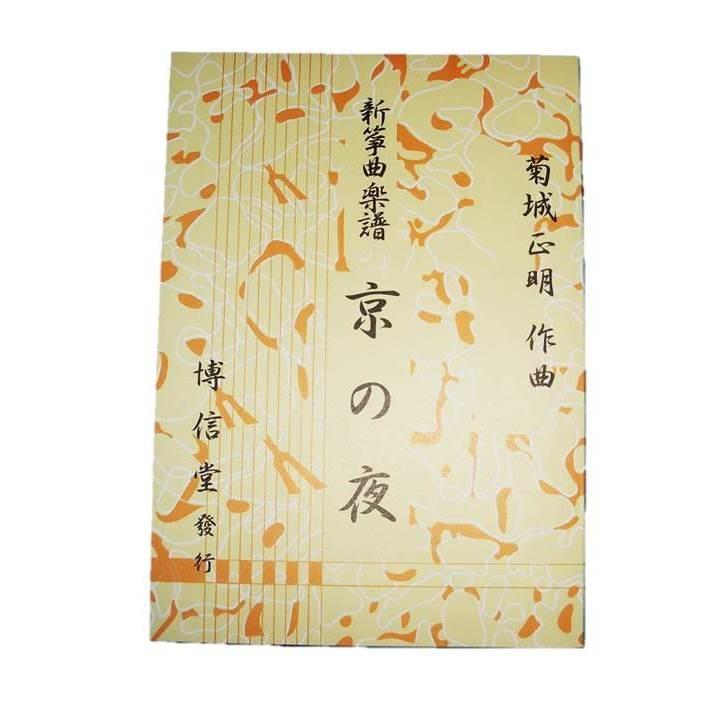 菊城正明 作曲
新箏曲楽譜
京の夜
博信堂發行